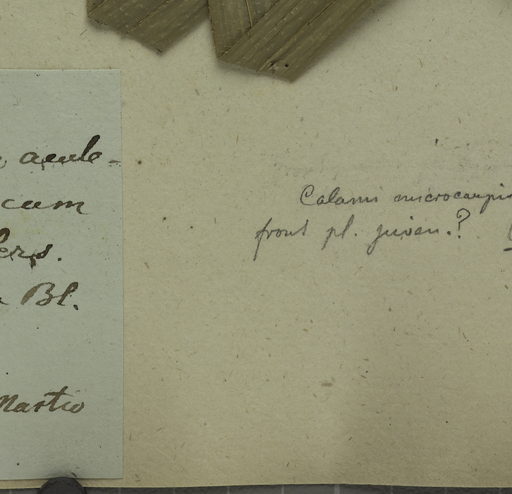 acule-
cum
Bl.
Martio
Calami microcarpi
front pl. juven.?